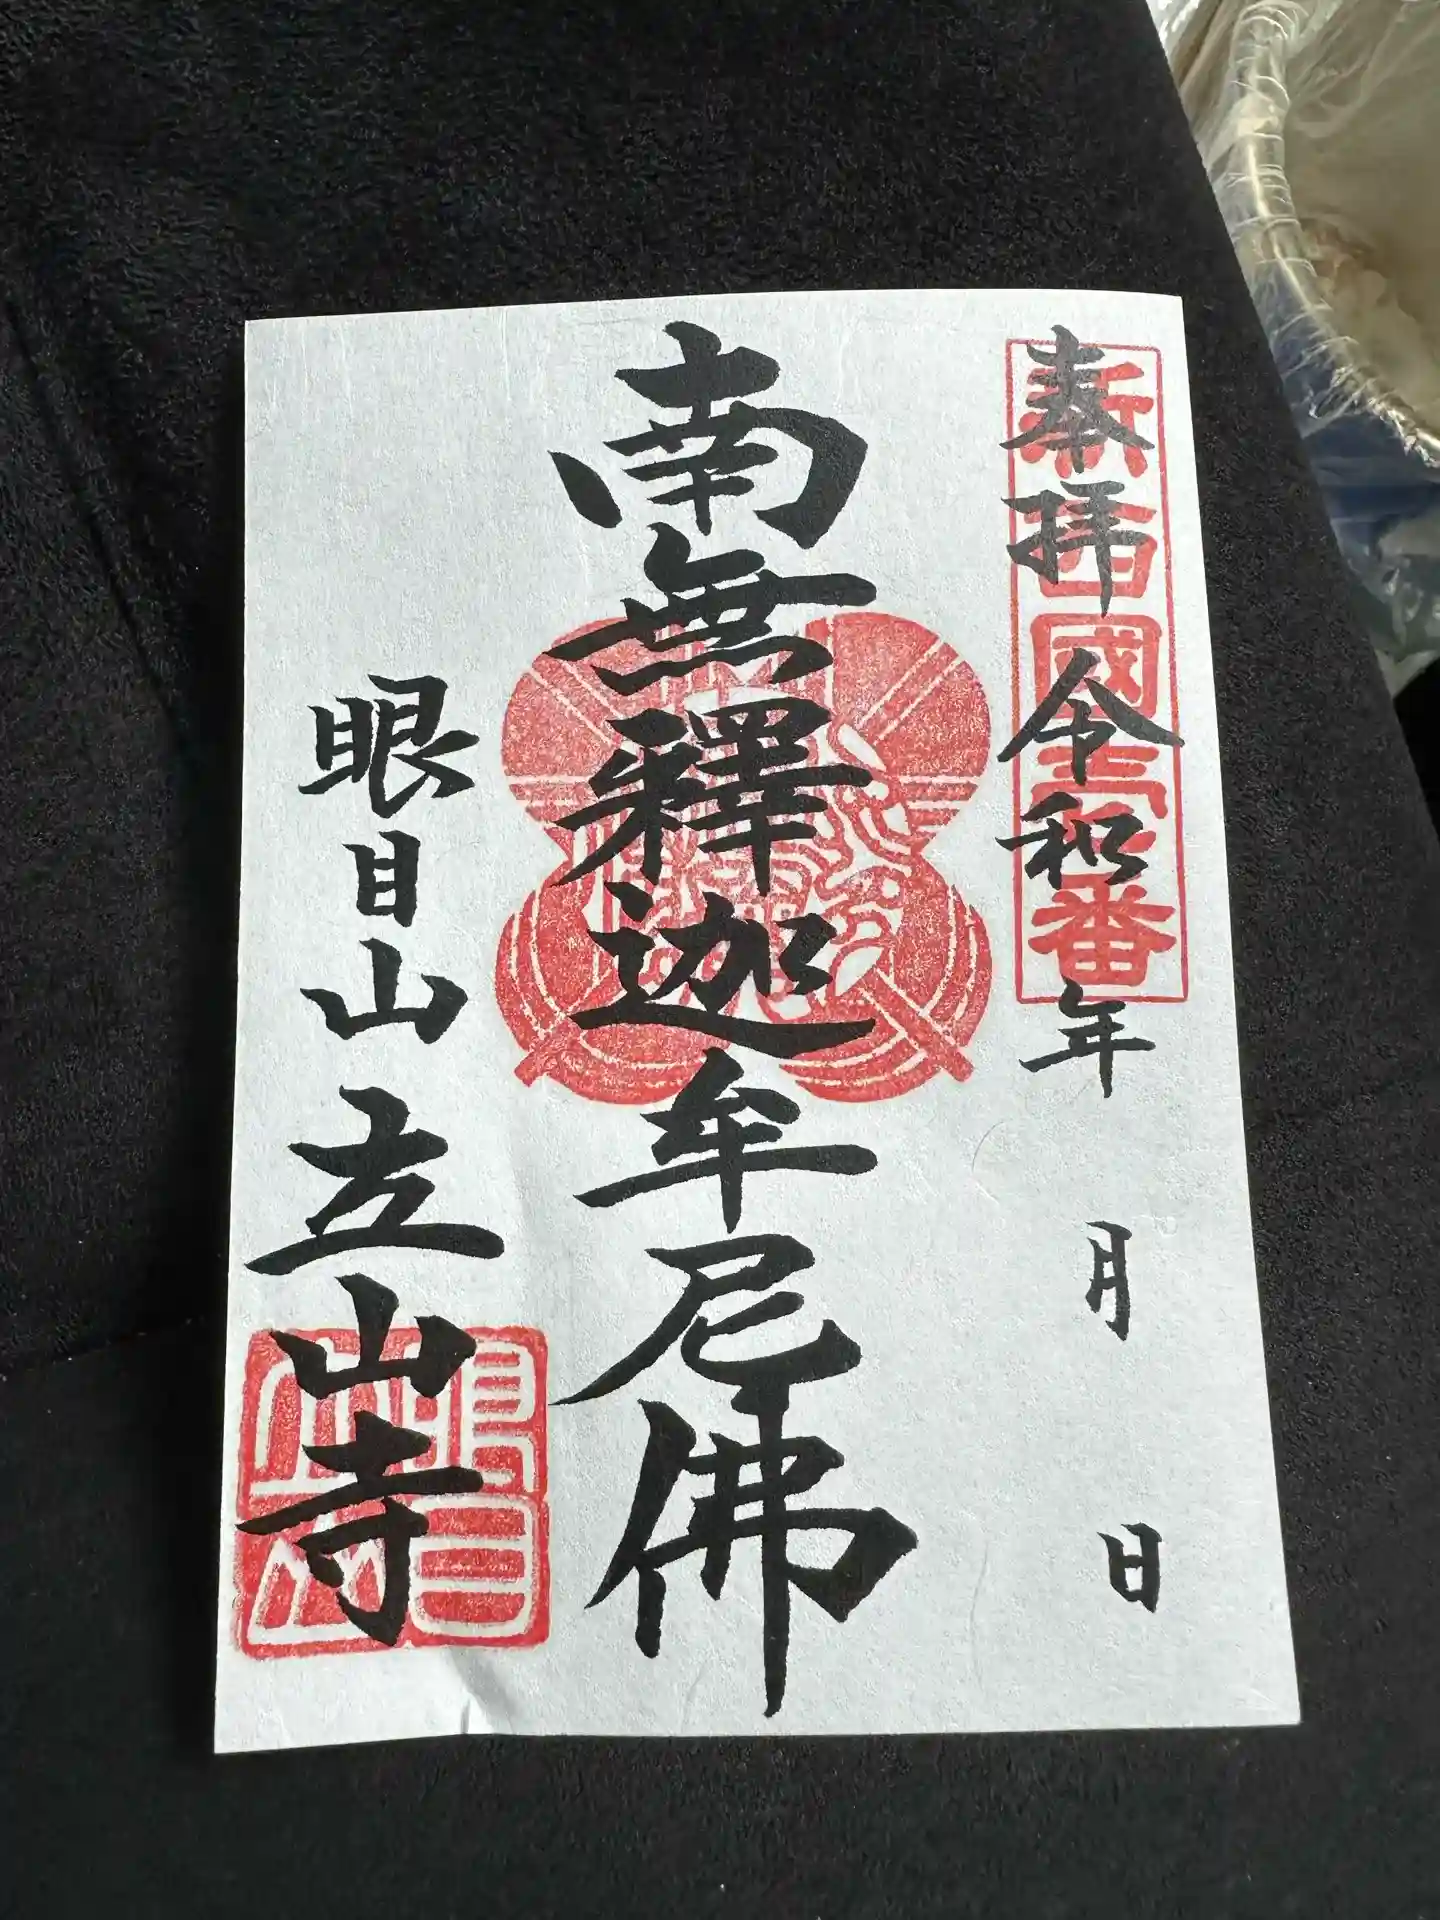 奉拝 令和 年 月 日
新西國壱番
南無釋迦牟尼佛
眼目山 立山寺
眼目立山